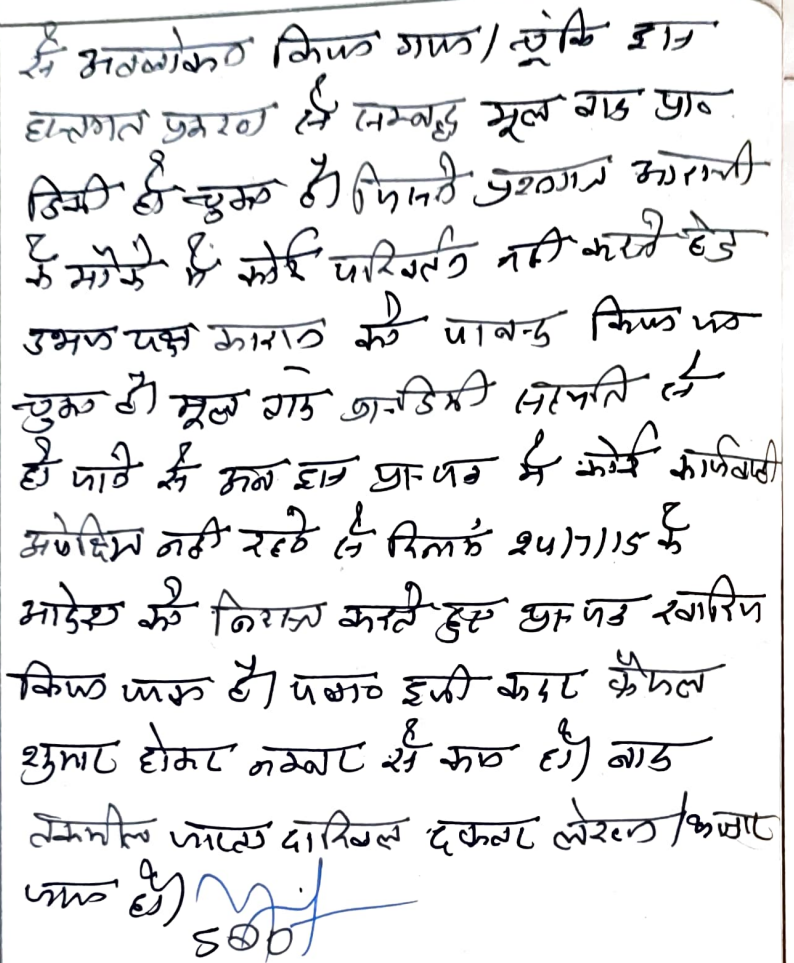 से अवलोकन किया गया/ चूंकि इस
हस्तगत प्रकरण से सम्बद्ध मूल वाद प्रा०
डिक्री हो चुका है। जिसमें प्रश्नगत आराजी
के मौके में कोई परिवर्तन नही करने हेतु
उभय पक्ष कारान को पाबन्द किया जा
चुका है। मूल वाद प्रा- डिक्री सहमति से
हो जाने से अब इस प्रा- पत्र में कोई कार्यवाही
अपेक्षित नही रहने से दिनांक 24/7/15 के
आदेश को निरस्त करते हुए प्रा- पत्र खारिज
किया जाता है। पत्रा० इसी कदर फैसल
शुमार होकर नम्बर से कम हो। बाद
तकमील जाप्ता दाखिल दफ्तर लेख्य /
जाता हो।
SDO